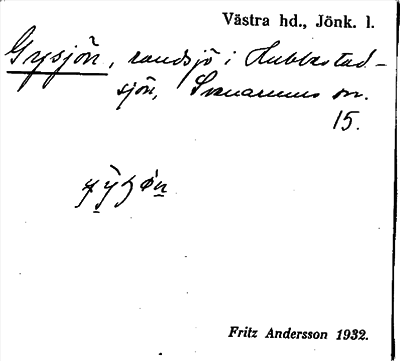 Västra hd., Jönk. l.
Grysjön, randsjö i Hubbestad-
sjön, Svenarums sn.
15.
Fritz Andersson 1932.